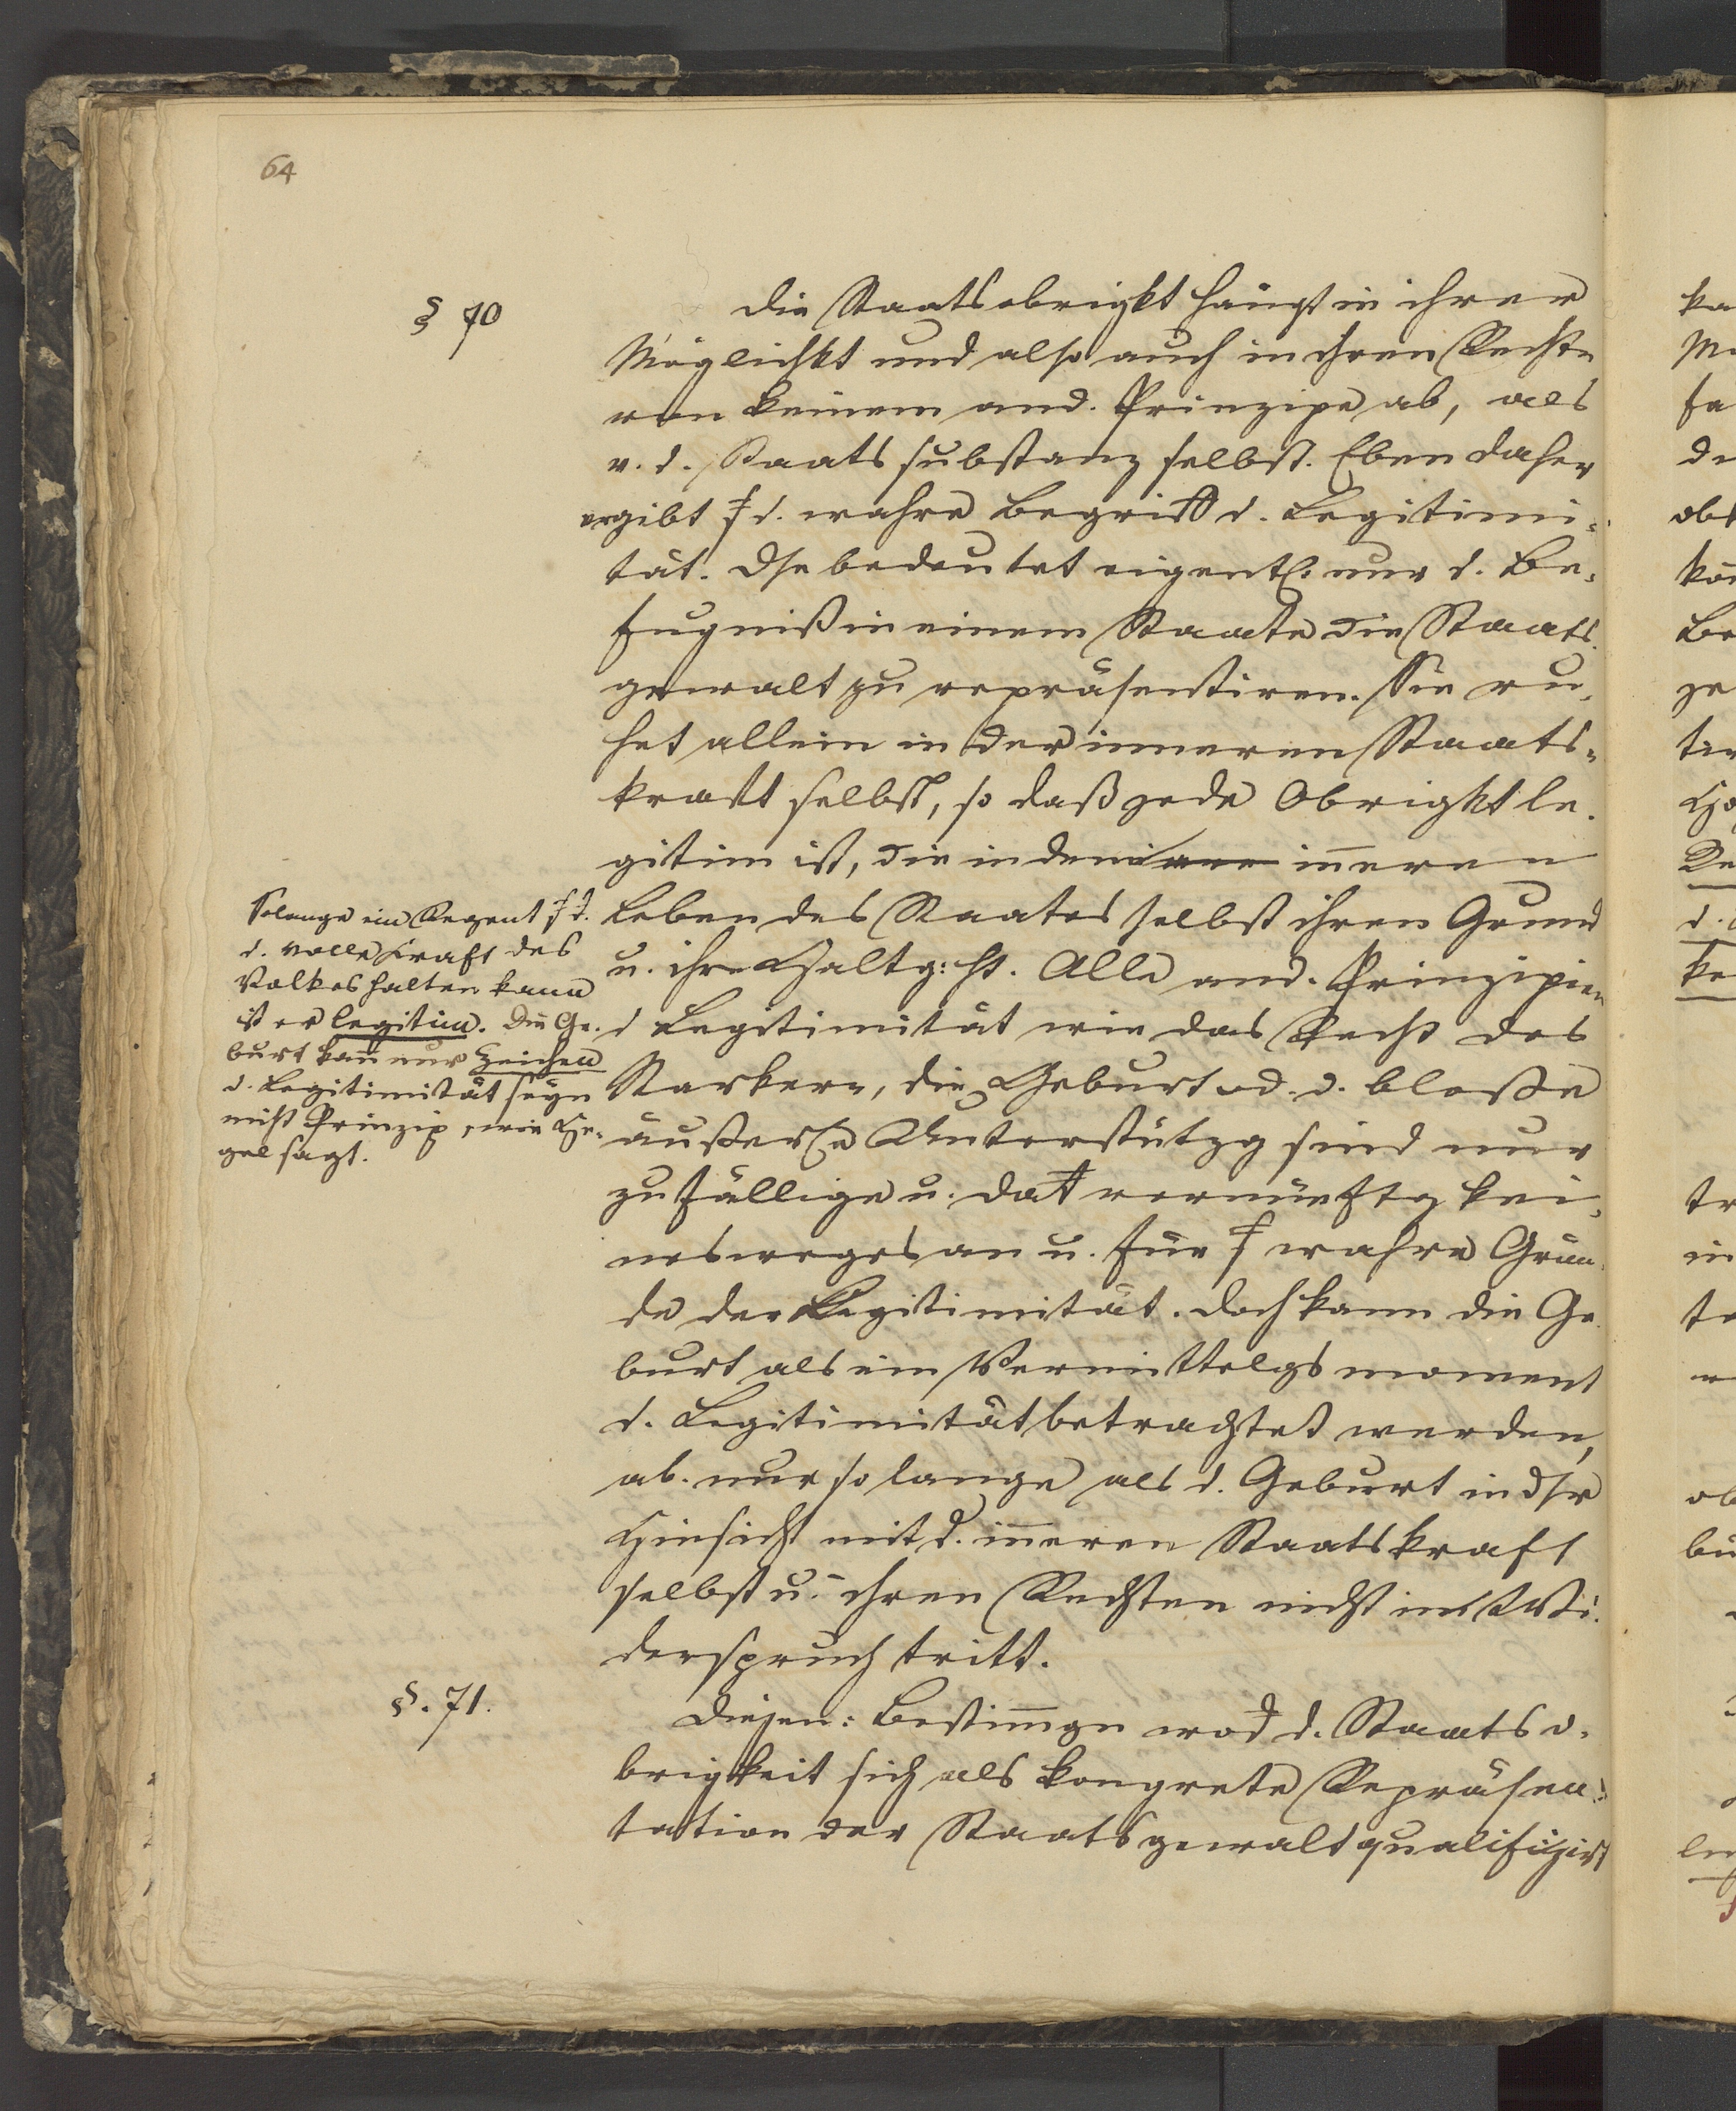 64
§ 70
Die Staatsobrigkt hängt in ihrer
Möglichkt und also auch in ihren Rechte
von keinem and. Prinzipe ab, als
v. d. Staatssubstanz selbst. Eben daher
ergibt s. d. wahre Begriff d. Legitimi-
tät. Dse bedeutet eigentl. nur d. Be-
fugniß in einem Staate die Staats-
gewalt zu repräsentiren. Sie ru-
het allein in der inneren Staats-
kraft selbst, so daß jede Obrigkt le-
gitim ist, die in dem inneren
Leben des Staates selbst ihren Grund
u. ihre Haltg: ht. Alle and. Prinzipien
d Legitimität wie das Recht des
Starkern, die Geburt od. d. bloße
äußerle Unterstützg sind nur
zufällige u. vernünftg kei-
nesweges an u. für s. wahre Grün-
de der Legitimität. Doch kann die Ge-
burt als ein Vermittelgsmoment
d. Legitimität betrachtet werden,
ab. nur so lange als d. Geburt in dsr
Hinsicht mit d. inneren Staatskraft
selbst u. ihren Rechten nicht in Wi-
derspruch tritt.
Solange ein Regent s. d.
d. volle Kraft des
Volkes halten kann
ist er legitim. Die Ge-
burt kann nur Zeichen
d. Legitimität seyn
nicht Prinzip, wie He-
gel sagt.
§. 71.
Bestimmgn d. Staatso-
brigkeit sich als kongrete Repräsen-
tation der Staatsgewalt qualifizirt